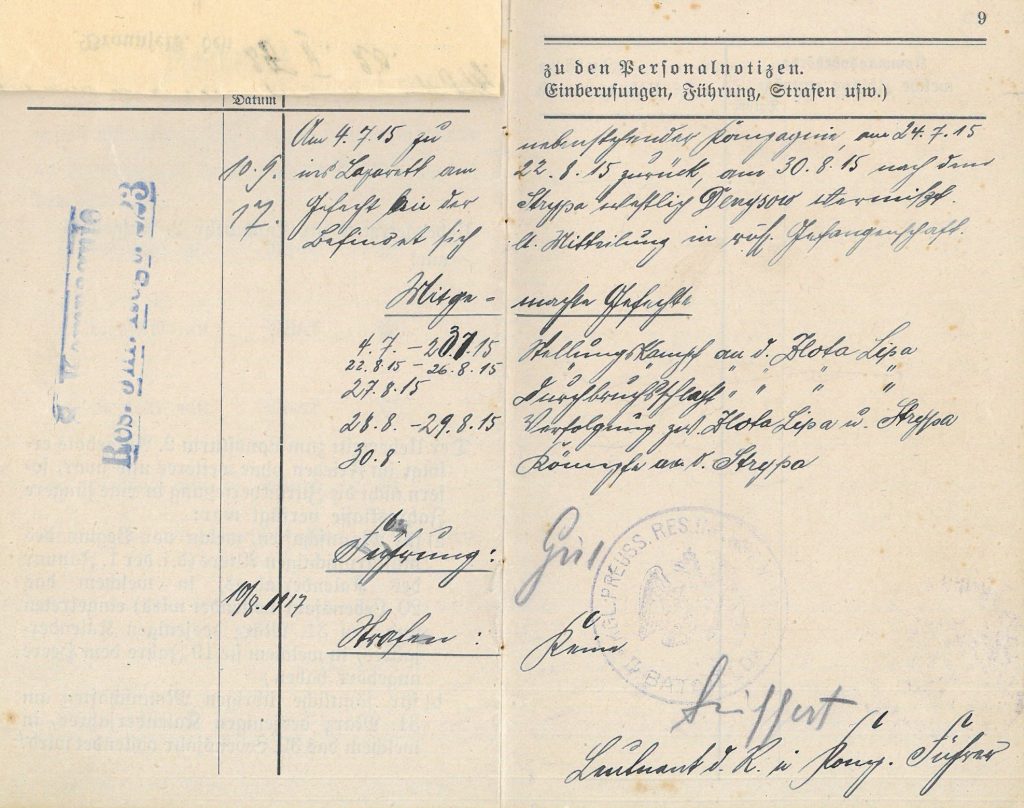 9
zu den Personalnotizen.
Einberufungen, Führung, Strafen usw.)
Datum
Am 4.7.15 zu nebenstehender Kompagnie, am 24.7.15
10.9. ins Lazarett am 22.8.15 zurück, am 30.8.15 nach dem
17. Gefecht bei der Strypa westlich Denysow vermißt.
Befindet sich lt. Mitteilung in russ. Gefangenschaft.
Mitge- machte Gefechte
4.7. - 23.7.15 Stellungskampf an d. Zlota Lipa
22.8.15 - 26.8.15 " " " "
27.8.15 Durchbruchschlacht " " " "
28.8. - 29.8.15 Verfolgung zw. Zlota Lipa u. Strypa
30.8 Kämpfe an d. Strypa
Führung: Gut
10/8.1917
Strafen: Keine
KGL. PREUSS. RES.
BAT
Seiffert
Leutnant d. R. u. Komp. Führer